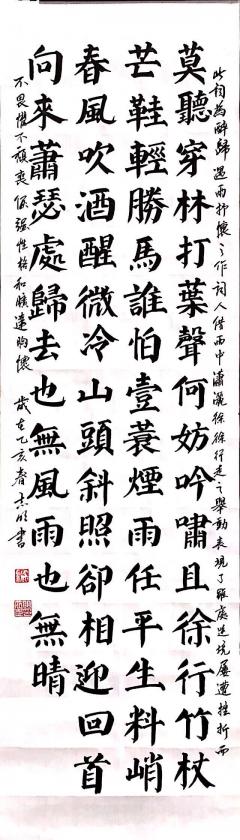 此詞為醉歸遇雨抒懷之作詞人借雨中瀟灑徐徐行走之舉動表現了雖處逆境屢遭挫折而
莫聽穿林打葉聲何妨吟嘯且徐行竹杖
芒鞋輕勝馬誰怕壹蓑煙雨任平生料峭
春風吹酒醒微冷山頭斜照卻相迎回首
向來蕭瑟處歸去也無風雨也無晴
不畏懼不頹喪倔强性格和曠達胸懷 歲在乙亥春志明書